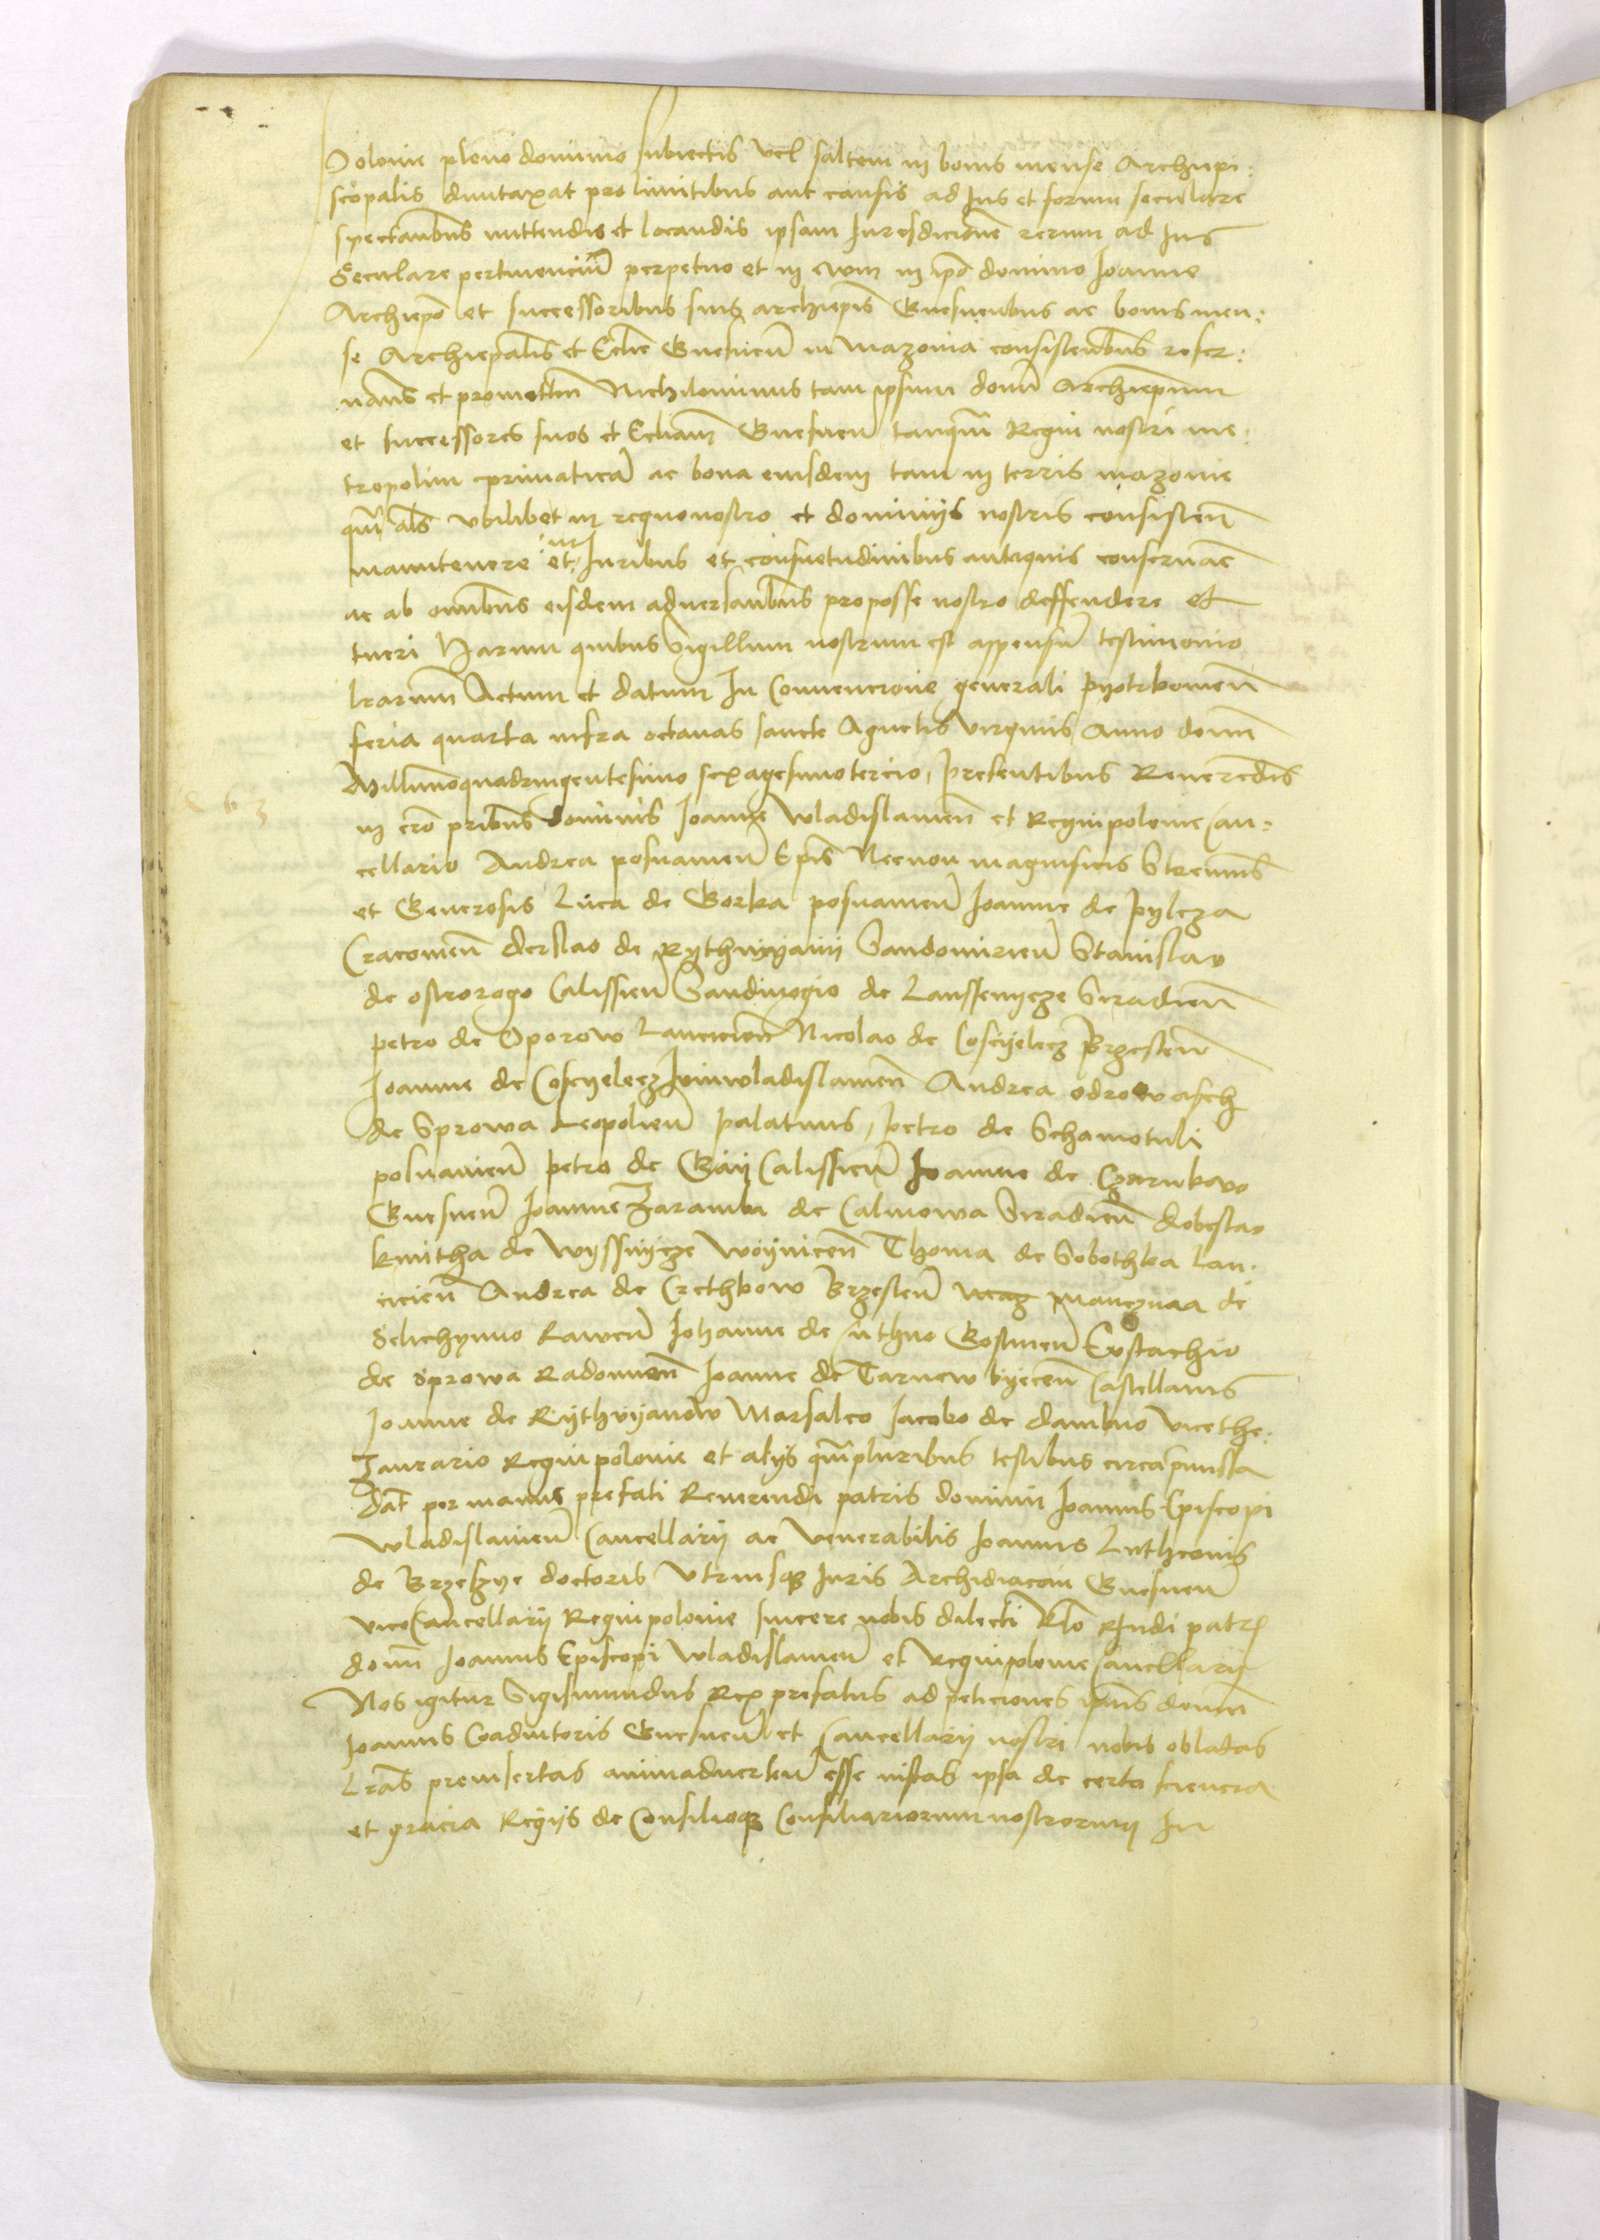 Polonie pleno dominio subiectis vel saltem in bonis mense Archiepi:
scopalis duntaxat pro limitibus aut causis ad Ius et forum seculare
spectanbus mittendis et locandis ipsam Iurisdicionem rerum ad Ius
Seculare pertinenciu perpetuo et in evum in ipo domino Ioanne
Archiepo et successoribus suis archiepis Gnesnenbus ac bonis men:
se Archiepalis et Eclie Gnesnen in Mazovia consistenbus reser:
vans et promitten Nichilominus tam ipsum donu Archiepum
et successores suos et Ecliam Gnesnen tanqua Regni nostri me:
tropolim primatica ac bona eiusdem tam in terris mazovie
qua als ubilibet in regno nostro et dominijs nostris consisten
manutenere et in Iuribus et consuetudinibus antiquis conservac
ac ab omnibus eisdem adversanbus pro posse nostro deffendere et
tueri Harum quibus Sigillum nostrum est appensu testimonio
lrarum Actum et datum In Convencione generali pyotrkovien
feria quarta infra octavas sancte Agnetis virginis Anno domi
Millimoquadringentesimo sexagesimotercio, presentibus Reverendis
in cro pribus dominis Ioanne Wladislavien et Regni polonie Can:
cellario Andrea posnanien Epis Necnon magnificis Strenuis
et Generosis Luca de Gorka posnanien Ioanne de pylcza
Cracovien derslao de Rythwyany Sandomirien Stanislao
de ostrorogo Calissien Sandivogio de Lanssenycze Siradien
petro de Oporow Lancicien Nicolao de Coscyelecz Brzesten
Ioanne de Coscyelecz Iuniwladislavien Andrea odrowasch
de Sprowa Leopolien palatinis, petro de Schamotuli
posnanien petro de Gay Calissien Ioanne de Czarnkovo
Gnesnen Ioanne Zaramba de Calinowa Siradien dobeslao
kmitha de Wyssnycze Woynicen Thoma de Sobothka Lan:
cicien Andrea de Crethkow Brzesten
Selichynno Rawen Iohanne de Cuthno Gostinen Eustachio
de Sprowa Radomien Ioanne de Tarnow byecen Castellanis
Ioanne de Rythwyanow Marsalco Iacobo de dambno vicethe:
zaurario Regni polonie et alijs qmpluribus testibus circa premissa
Dat per manus prefati Reverendi patris domini Ioannis Episcopi
Wladislavien Cancellarij ac Venerabilis Ioannis Luthconis
de Brzeszye doctoris Utriusque Iuris Archidiaconi Gnesnen
vice Cancellarij Regni polonie sincere nobis dilecti Rlo Rndi patris
domi Ioannis Episcopi Wladislavien et Regni polonie Cancellarij
Nos igitur Sigismundus Rex prefatus ad peticiones ipius domini
Ioannis Coadiutoris Gnesnen et Cancellarij nostri nobis obladas
Lras preinsertas animadverten esse iustas ipsa de certa sciencia
et gracia Regijs de Consilioque Consiliariorum nostrorum In